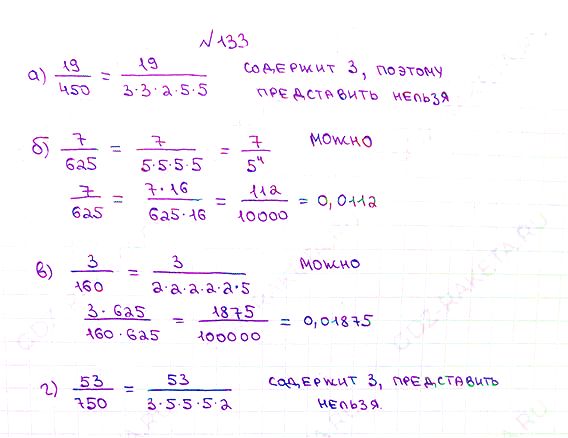 №133
а) 19/450 = 19/(3·3·2·5·5) СОДЕРЖИТ 3, ПОЭТОМУ
ПРЕДСТАВИТЬ НЕЛЬЗЯ
б) 7/625 = 7/(5·5·5·5) = 7/5⁴ МОЖНО
7/625 = (7·16)/(625·16) = 112/10000 = 0,0112
в) 3/160 = 3/(2·2·2·2·2·5) МОЖНО
(3·625)/(160·625) = 1875/100000 = 0,01875
г) 53/750 = 53/(3·5·5·5·2) СОДЕРЖИТ 3, ПРЕДСТАВИТЬ
НЕЛЬЗЯ.